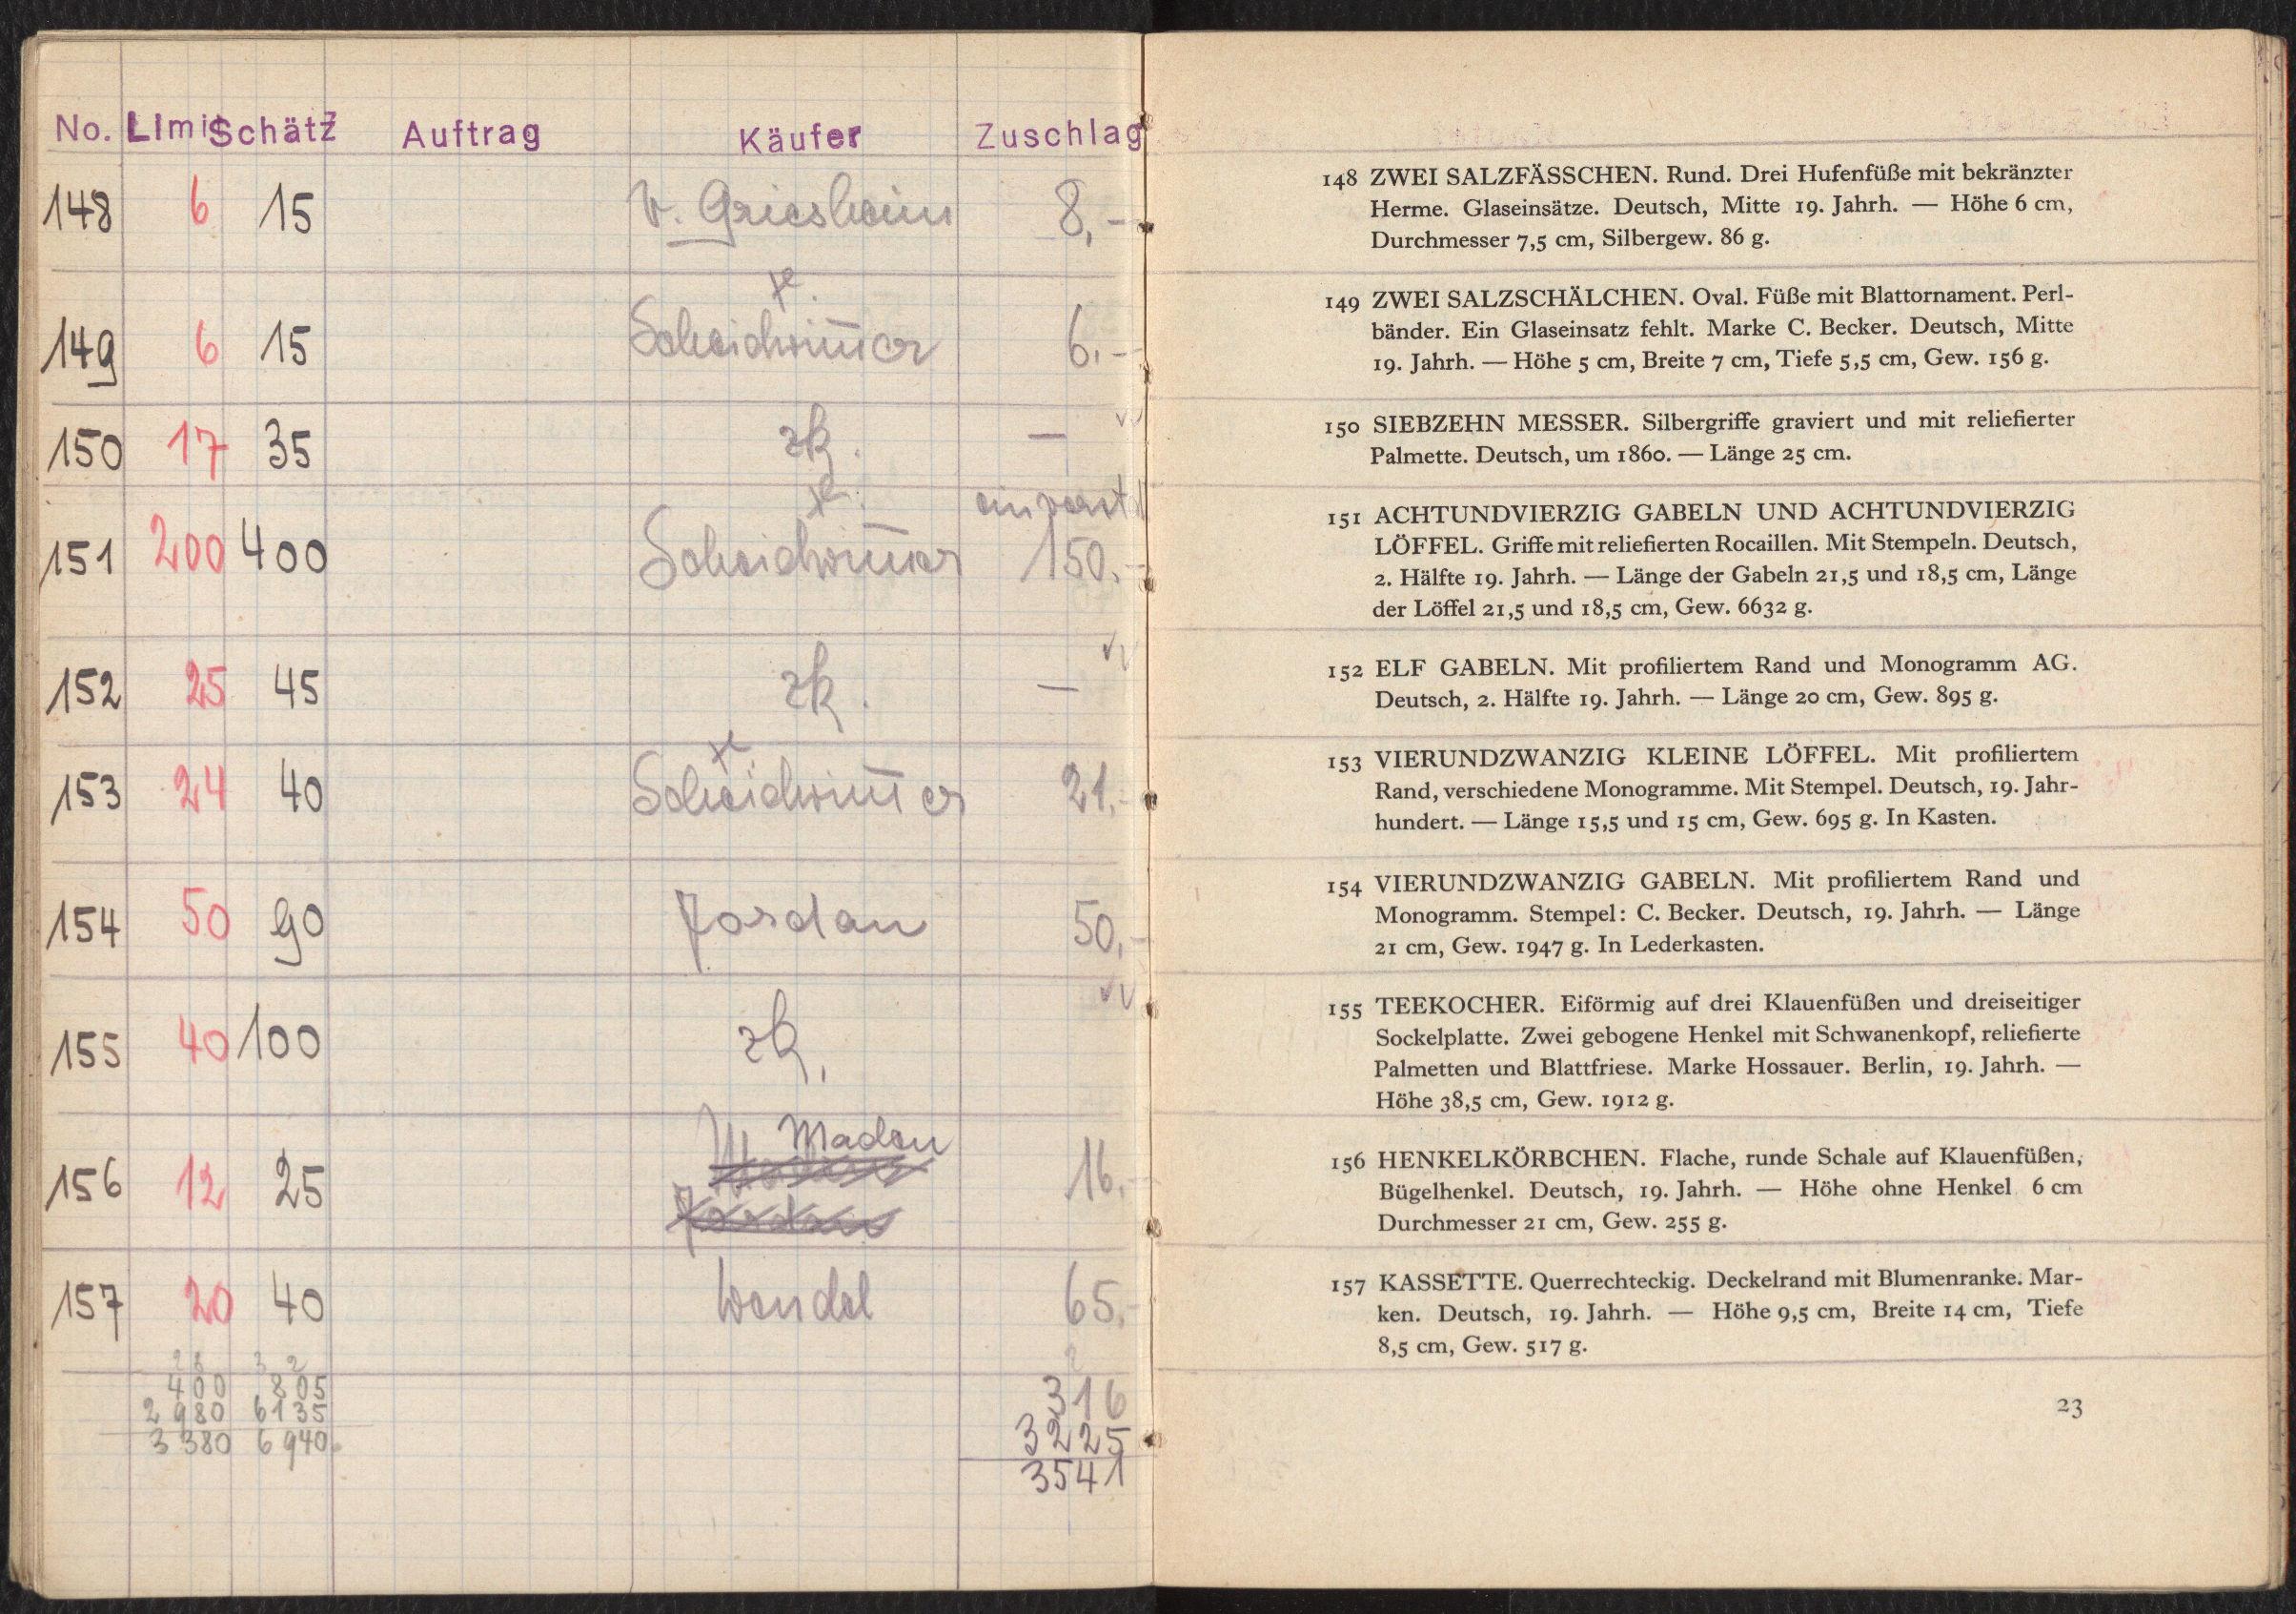 No. Limit Schätz Auftrag Käufer Zuschlag
148 6 15 v. Griesheim 8,-
149 6 15 Scheidwimmer 6.-
150 17 35 zk. —
einverst.
151 200 400 Scheidwimmer 150.-
152 25 45 zk. —
153 24 40 Scheidwimmer 21.-
154 50 90 Jordan 50,-
155 40 100 zk.
Maden
156 12 25 16.-
Jordan
157 20 40 Wendel 65.-
28 3 2 2
400 805 316
2980 6135 3225
3380 6940 3541
148 ZWEI SALZFÄSSCHEN. Rund. Drei Hufenfüße mit bekränzter
Herme. Glaseinsätze. Deutsch, Mitte 19. Jahrh. — Höhe 6 cm,
Durchmesser 7,5 cm, Silbergew. 86 g.
149 ZWEI SALZSCHÄLCHEN. Oval. Füße mit Blattornament. Perl-
bänder. Ein Glaseinsatz fehlt. Marke C. Becker. Deutsch, Mitte
19. Jahrh. — Höhe 5 cm, Breite 7 cm, Tiefe 5,5 cm, Gew. 156 g.
150 SIEBZEHN MESSER. Silbergriffe graviert und mit reliefierter
Palmette. Deutsch, um 1860. — Länge 25 cm.
151 ACHTUNDVIERZIG GABELN UND ACHTUNDVIERZIG
LÖFFEL. Griffe mit reliefierten Rocaillen. Mit Stempeln. Deutsch,
2. Hälfte 19. Jahrh. — Länge der Gabeln 21,5 und 18,5 cm, Länge
der Löffel 21,5 und 18,5 cm, Gew. 6632 g.
152 ELF GABELN. Mit profiliertem Rand und Monogramm AG.
Deutsch, 2. Hälfte 19. Jahrh. — Länge 20 cm, Gew. 895 g.
153 VIERUNDZWANZIG KLEINE LÖFFEL. Mit profiliertem
Rand, verschiedene Monogramme. Mit Stempel. Deutsch, 19. Jahr-
hundert. — Länge 15,5 und 15 cm, Gew. 695 g. In Kasten.
154 VIERUNDZWANZIG GABELN. Mit profiliertem Rand und
Monogramm. Stempel: C. Becker. Deutsch, 19. Jahrh. — Länge
21 cm, Gew. 1947 g. In Lederkasten.
155 TEEKOCHER. Eiförmig auf drei Klauenfüßen und dreiseitiger
Sockelplatte. Zwei gebogene Henkel mit Schwanenkopf, reliefierte
Palmetten und Blattfriese. Marke Hossauer. Berlin, 19. Jahrh. —
Höhe 38,5 cm, Gew. 1912 g.
156 HENKELKÖRBCHEN. Flache, runde Schale auf Klauenfüßen,
Bügelhenkel. Deutsch, 19. Jahrh. — Höhe ohne Henkel 6 cm
Durchmesser 21 cm, Gew. 255 g.
157 KASSETTE. Querrechteckig. Deckelrand mit Blumenranke. Mar-
ken. Deutsch, 19. Jahrh. — Höhe 9,5 cm, Breite 14 cm, Tiefe
8,5 cm, Gew. 517 g.
23